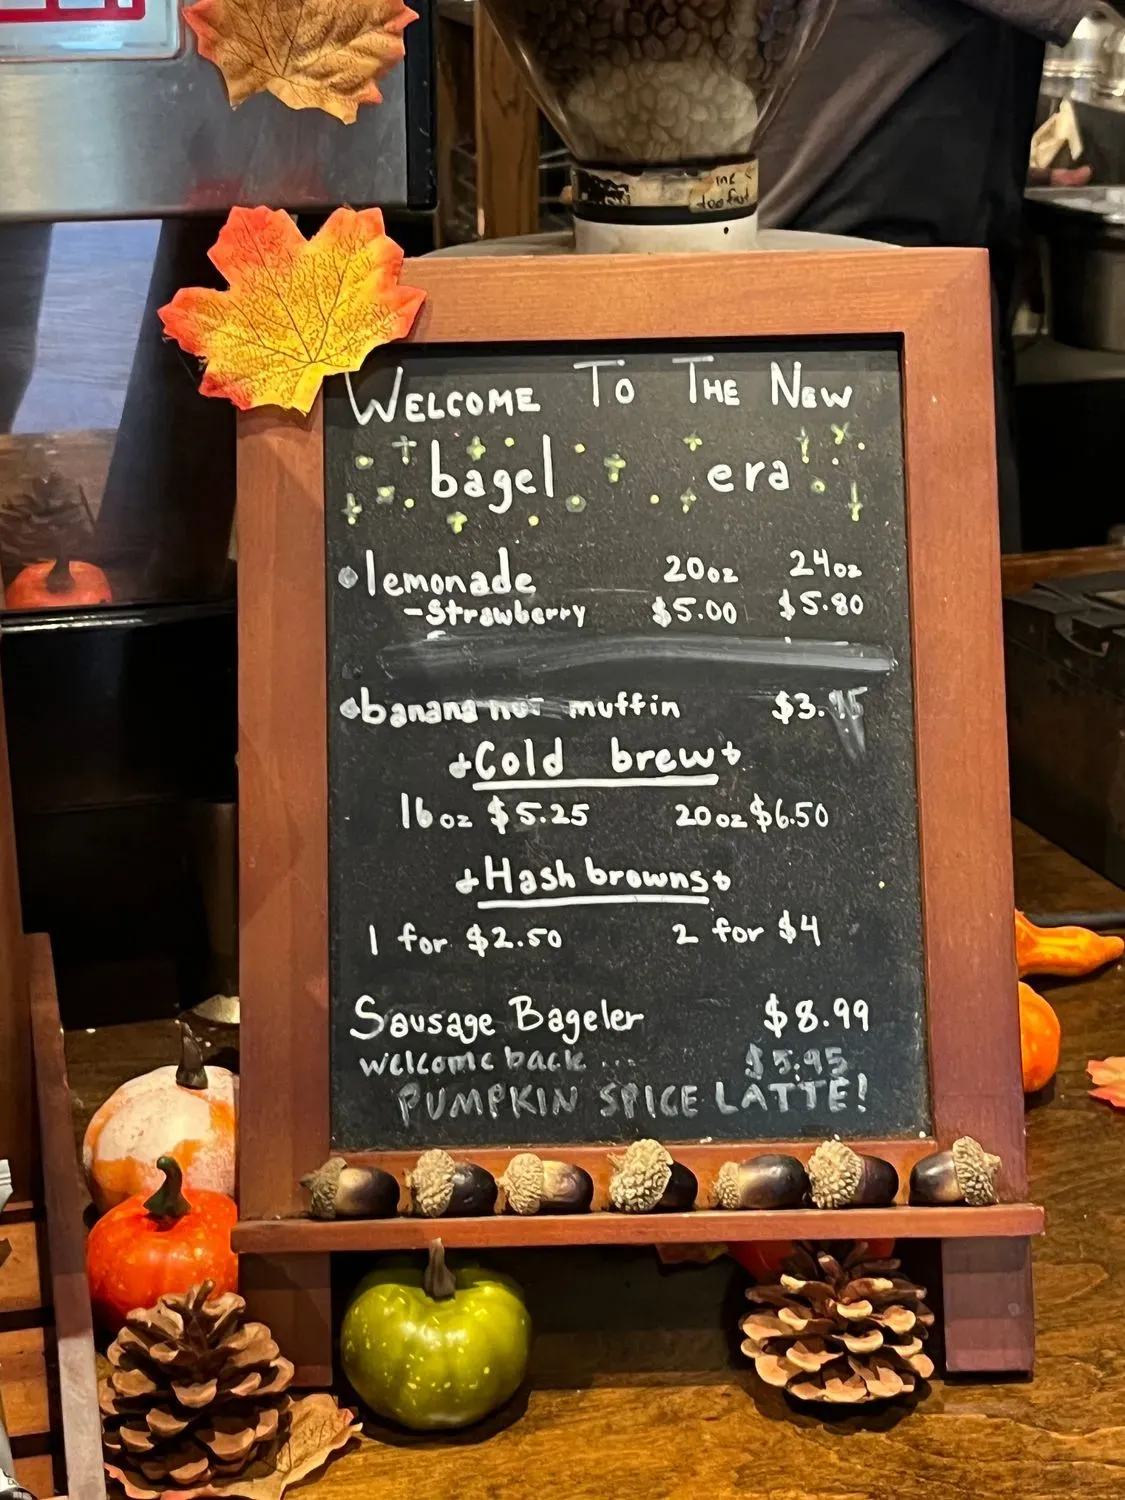 WELCOME TO THE NEW
bagel era
lemonade 20oz 24oz
-Strawberry $5.00 $5.80
banana nut muffin $3.95
Cold brew
16oz $5.25 20oz $6.50
Hash browns
1 for $2.50 2 for $4
Sausage Bageler $8.99
welcome back ... $5.95
PUMPKIN SPICE LATTE!